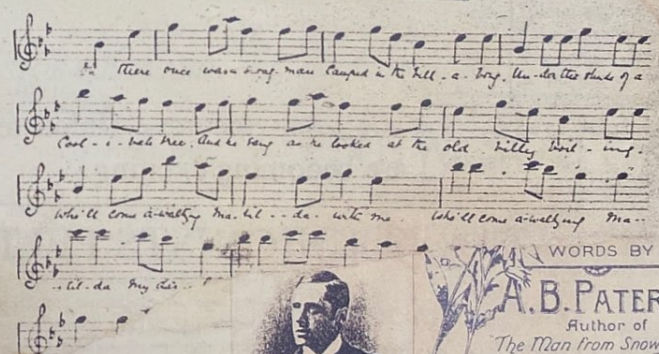 there once was a swag-man camped in the bill-a-bong, Un-der the shade of a
Cool-i-bah tree, And he sang as he looked at the old billy boil-ing.
Who'll come a-waltzing Ma-til--da with me. Who'll come a-waltzing Ma--
-til-da my
WORDS BY
A.B.PATER
Author of
The Man from Snow